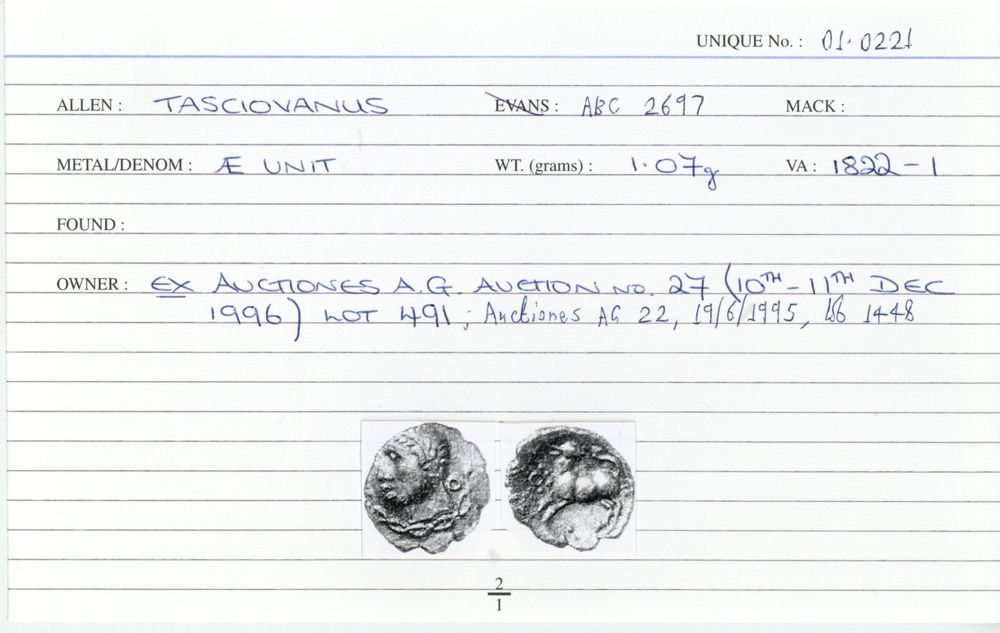 UNIQUE No. : 01.0221
ALLEN : TASCIOVANUS EVANS : ABC 2697 MACK :
METAL/DENOM : Æ UNIT WT. (grams) : 1.07g VA : 1822-1
FOUND :
OWNER : EX AUCTIONES A.G. AUCTION NO. 27 (10TH-11TH DEC
1996) LOT 491; Auctiones AG 22, 19/6/1995, 1448
2
1